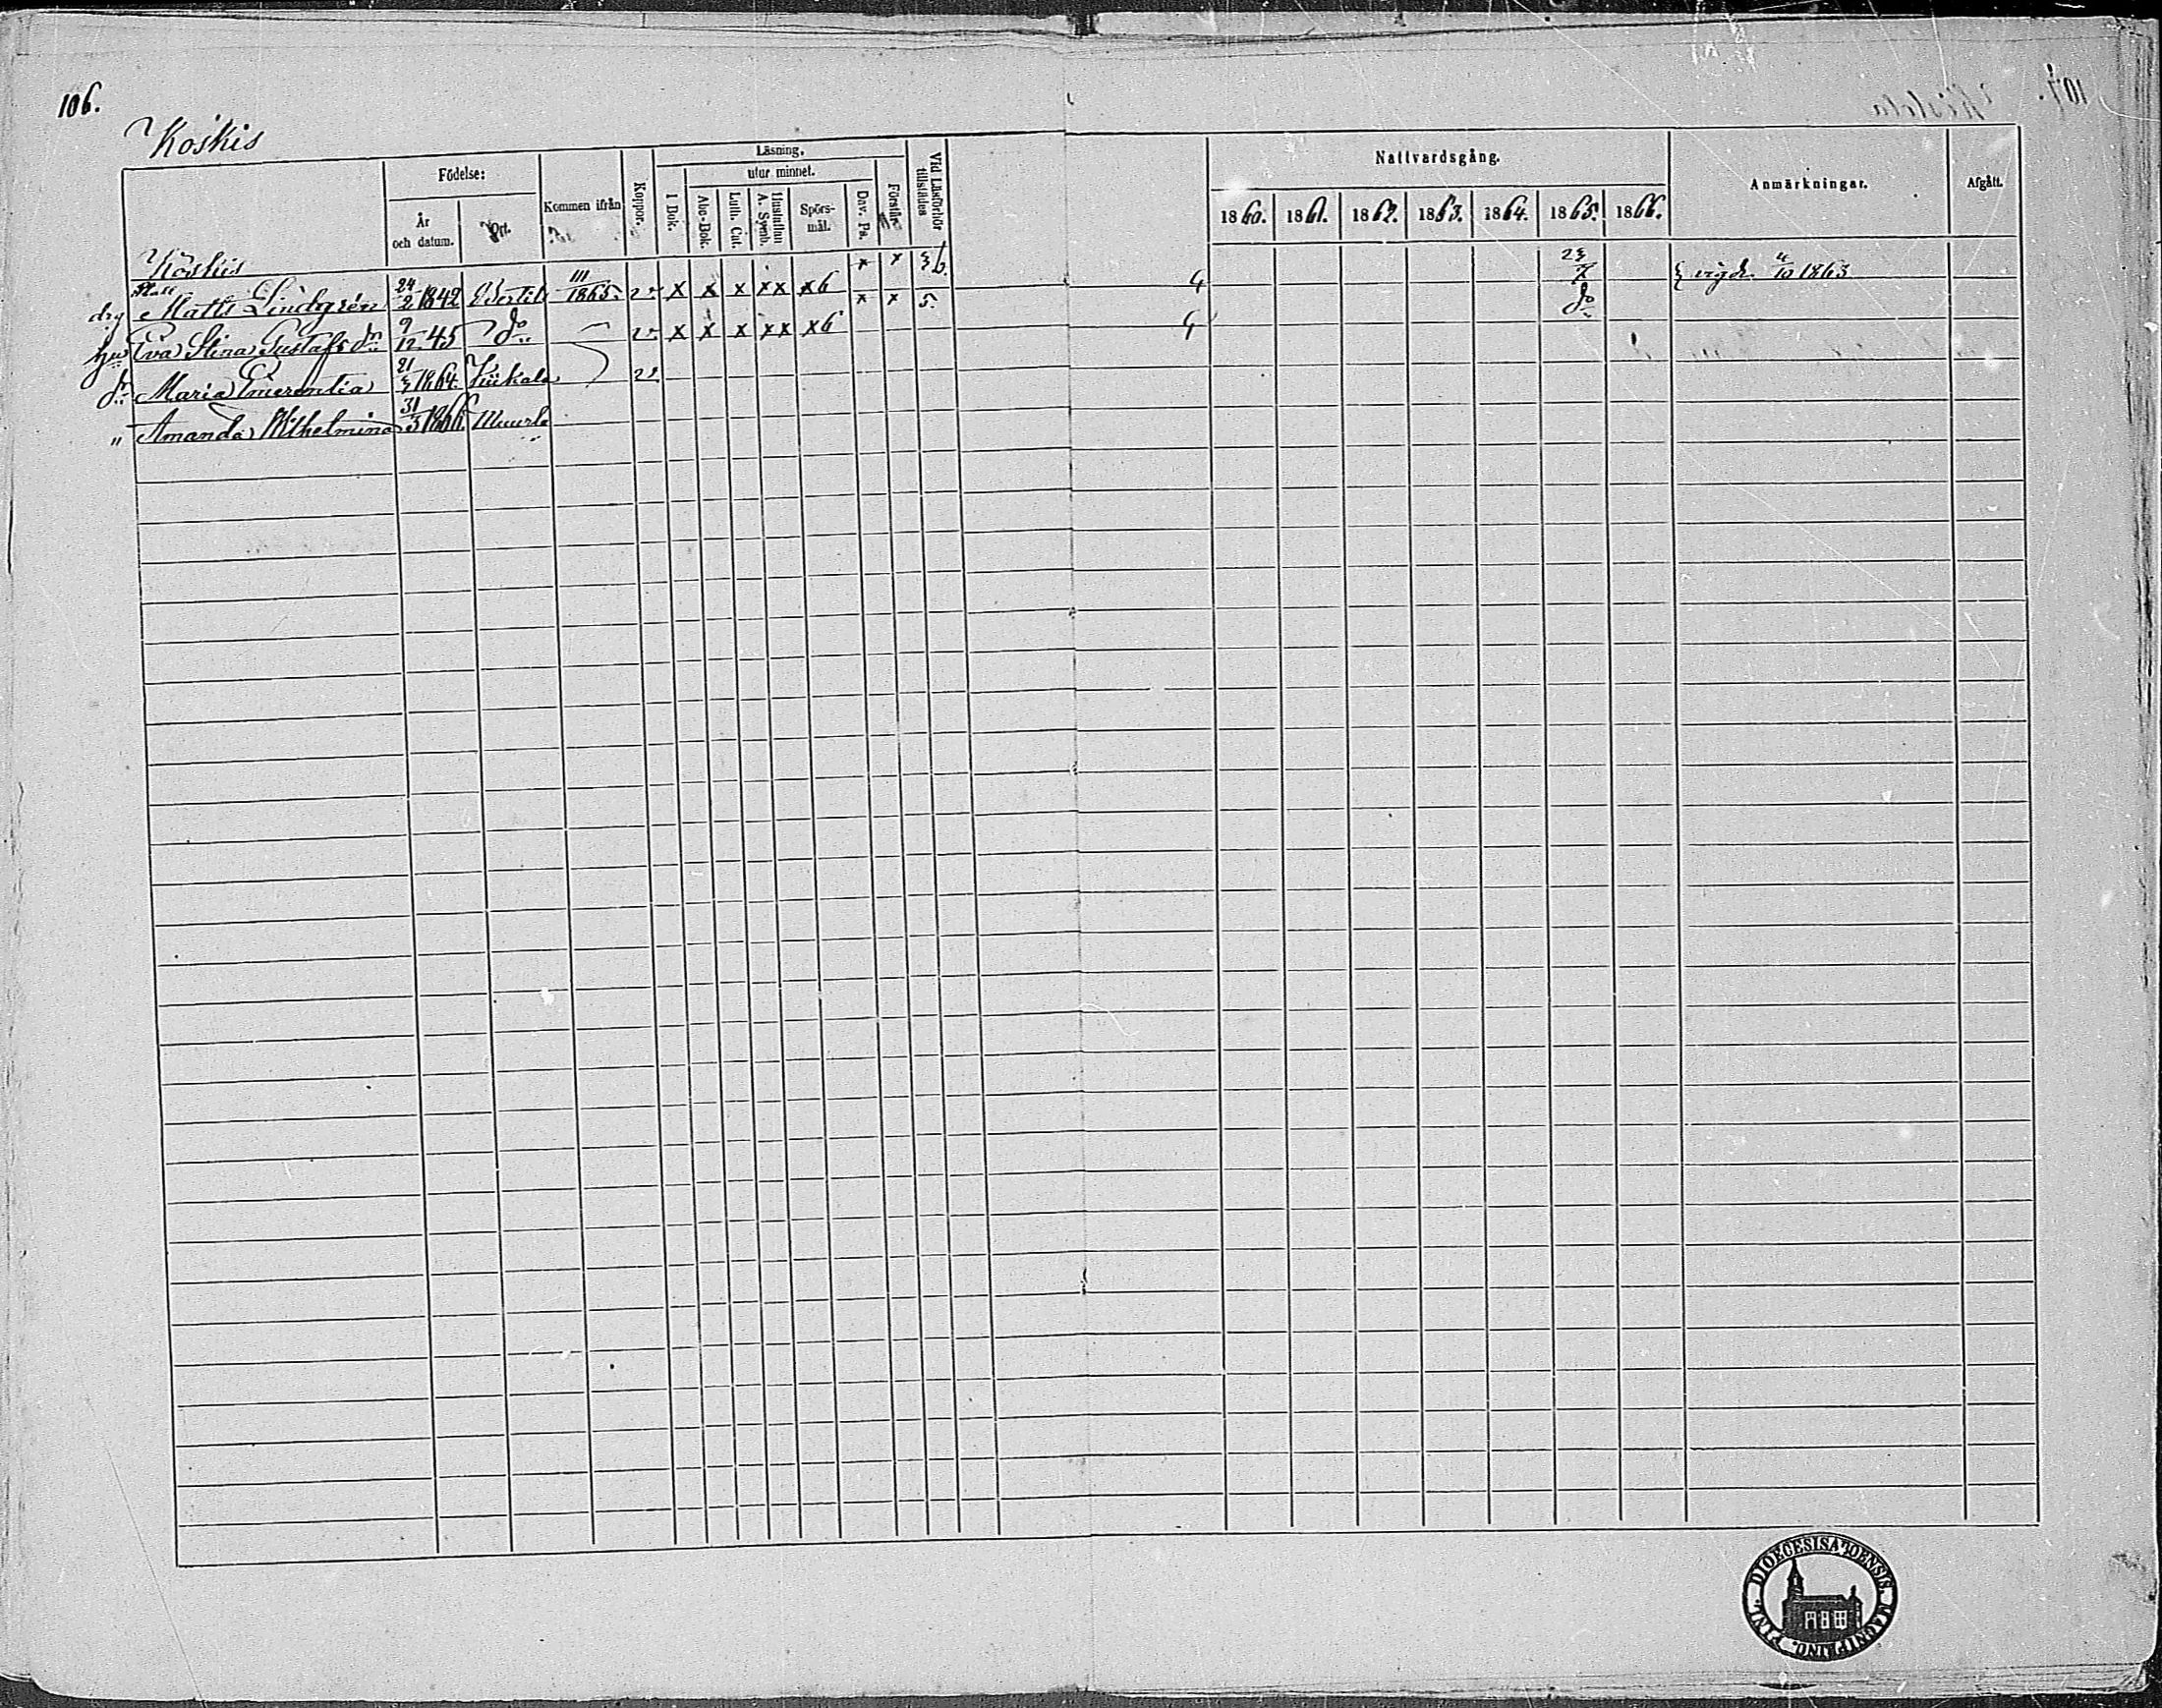 106.
107.
Koskis
Födelse:
År och datum.
Ort.
Kommen ifrån
Koppor.
Läsning,
utur minnet.
I Bok.
Abc-Bok.
Luth. Cat.
Hustaflan A. Symb.
Spörs-mål.
Dav. Ps.
Förstår
Vid Läsförhör tillstädes
Nattvardsgång.
1860. 1861. 1862. 1863. 1864. 1865. 1866.
Anmärkningar.
Afgått.
Koskis
drg Matts Lindgrén 24/2 1842 Bertils 1865. v x x x xx x6 x x 6 4 vigde 4/10 1863
hu Eva Stina Gustafsdr 9/12 45 do v x x x xx x6 x x 5. 4 do
dr Maria Emerentia 1864 v
" Amanda Wilhelmina 31/3 1866 Muurla
DIOECESIS ABOENSIS MAGNI PRINC. FINL.